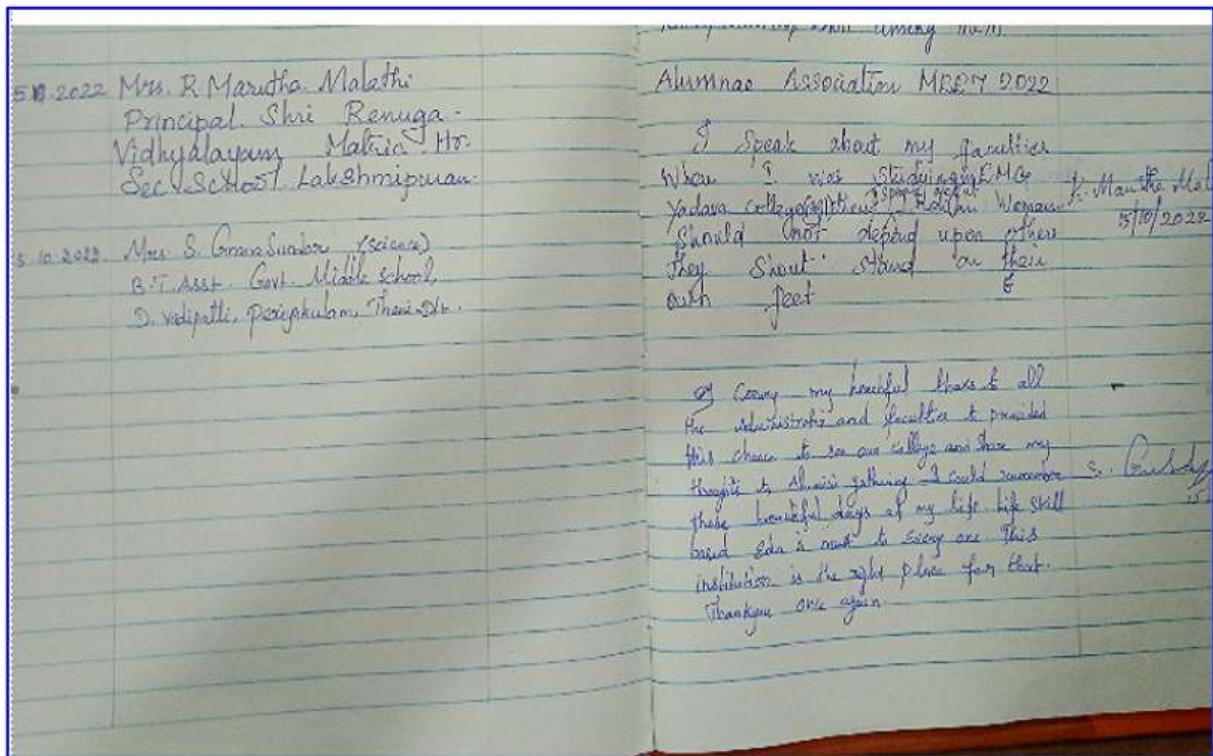 5.10.2022 Mrs. R. Marutha Malathi
Principal Shri Renuga
Vidhyalayam Matric Hr.
Sec School Lakshmipuram
5.10.2022 Mrs. S. (Science)
B.T. Asst. Govt. Middle School,
D. Vadipatti, Periyakulam, Theni Dt.
among them
Alumnae Association MEET 2022
I Speak about my faculties
When I was Studying in E.M.G
Yadava college Women
Should not depend upon others
they stand on their
own feet
R. Marutha Mal
15/10/2022
my thanks to all
the and faculties to provided
this chance to see our college and share my
thoughts to Alumni gathering I could remember
those beautiful days of my life. Life skill
based Edn is must to Every one This
institution is the right place for that.
Thankyou once again.
S.
15